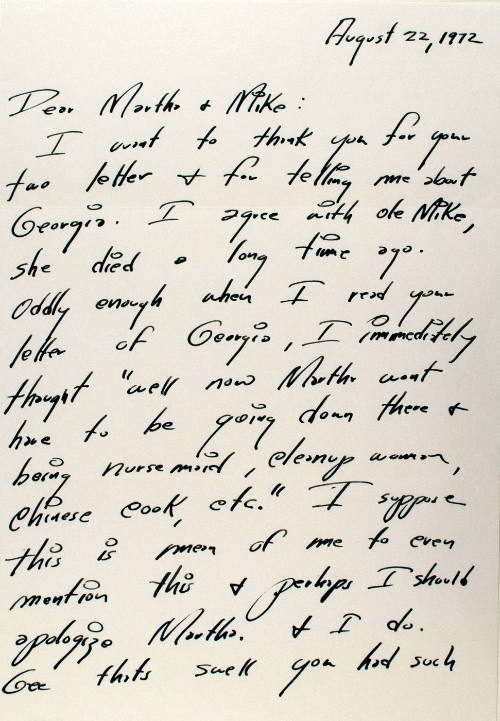 August 22, 1972
Dear Martha & Mike:
I want to thank you for your
two letter & for telling me about
Georgia. I agree with ole Mike,
she died a long time ago.
Oddly enough when I read your
letter of Georgia, I immediately
thought "well now Martha wont
have to be going down there &
being nursemaid, cleanup woman,
Chinese cook, etc." I suppose
this is mean of me to even
mention this & perhaps I should
apologize Martha. & I do.
Gee thats swell you had such